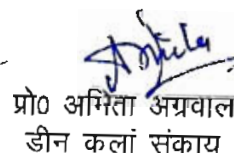 प्रो0 अमिता अग्रवाल
डीन कलां संकाय